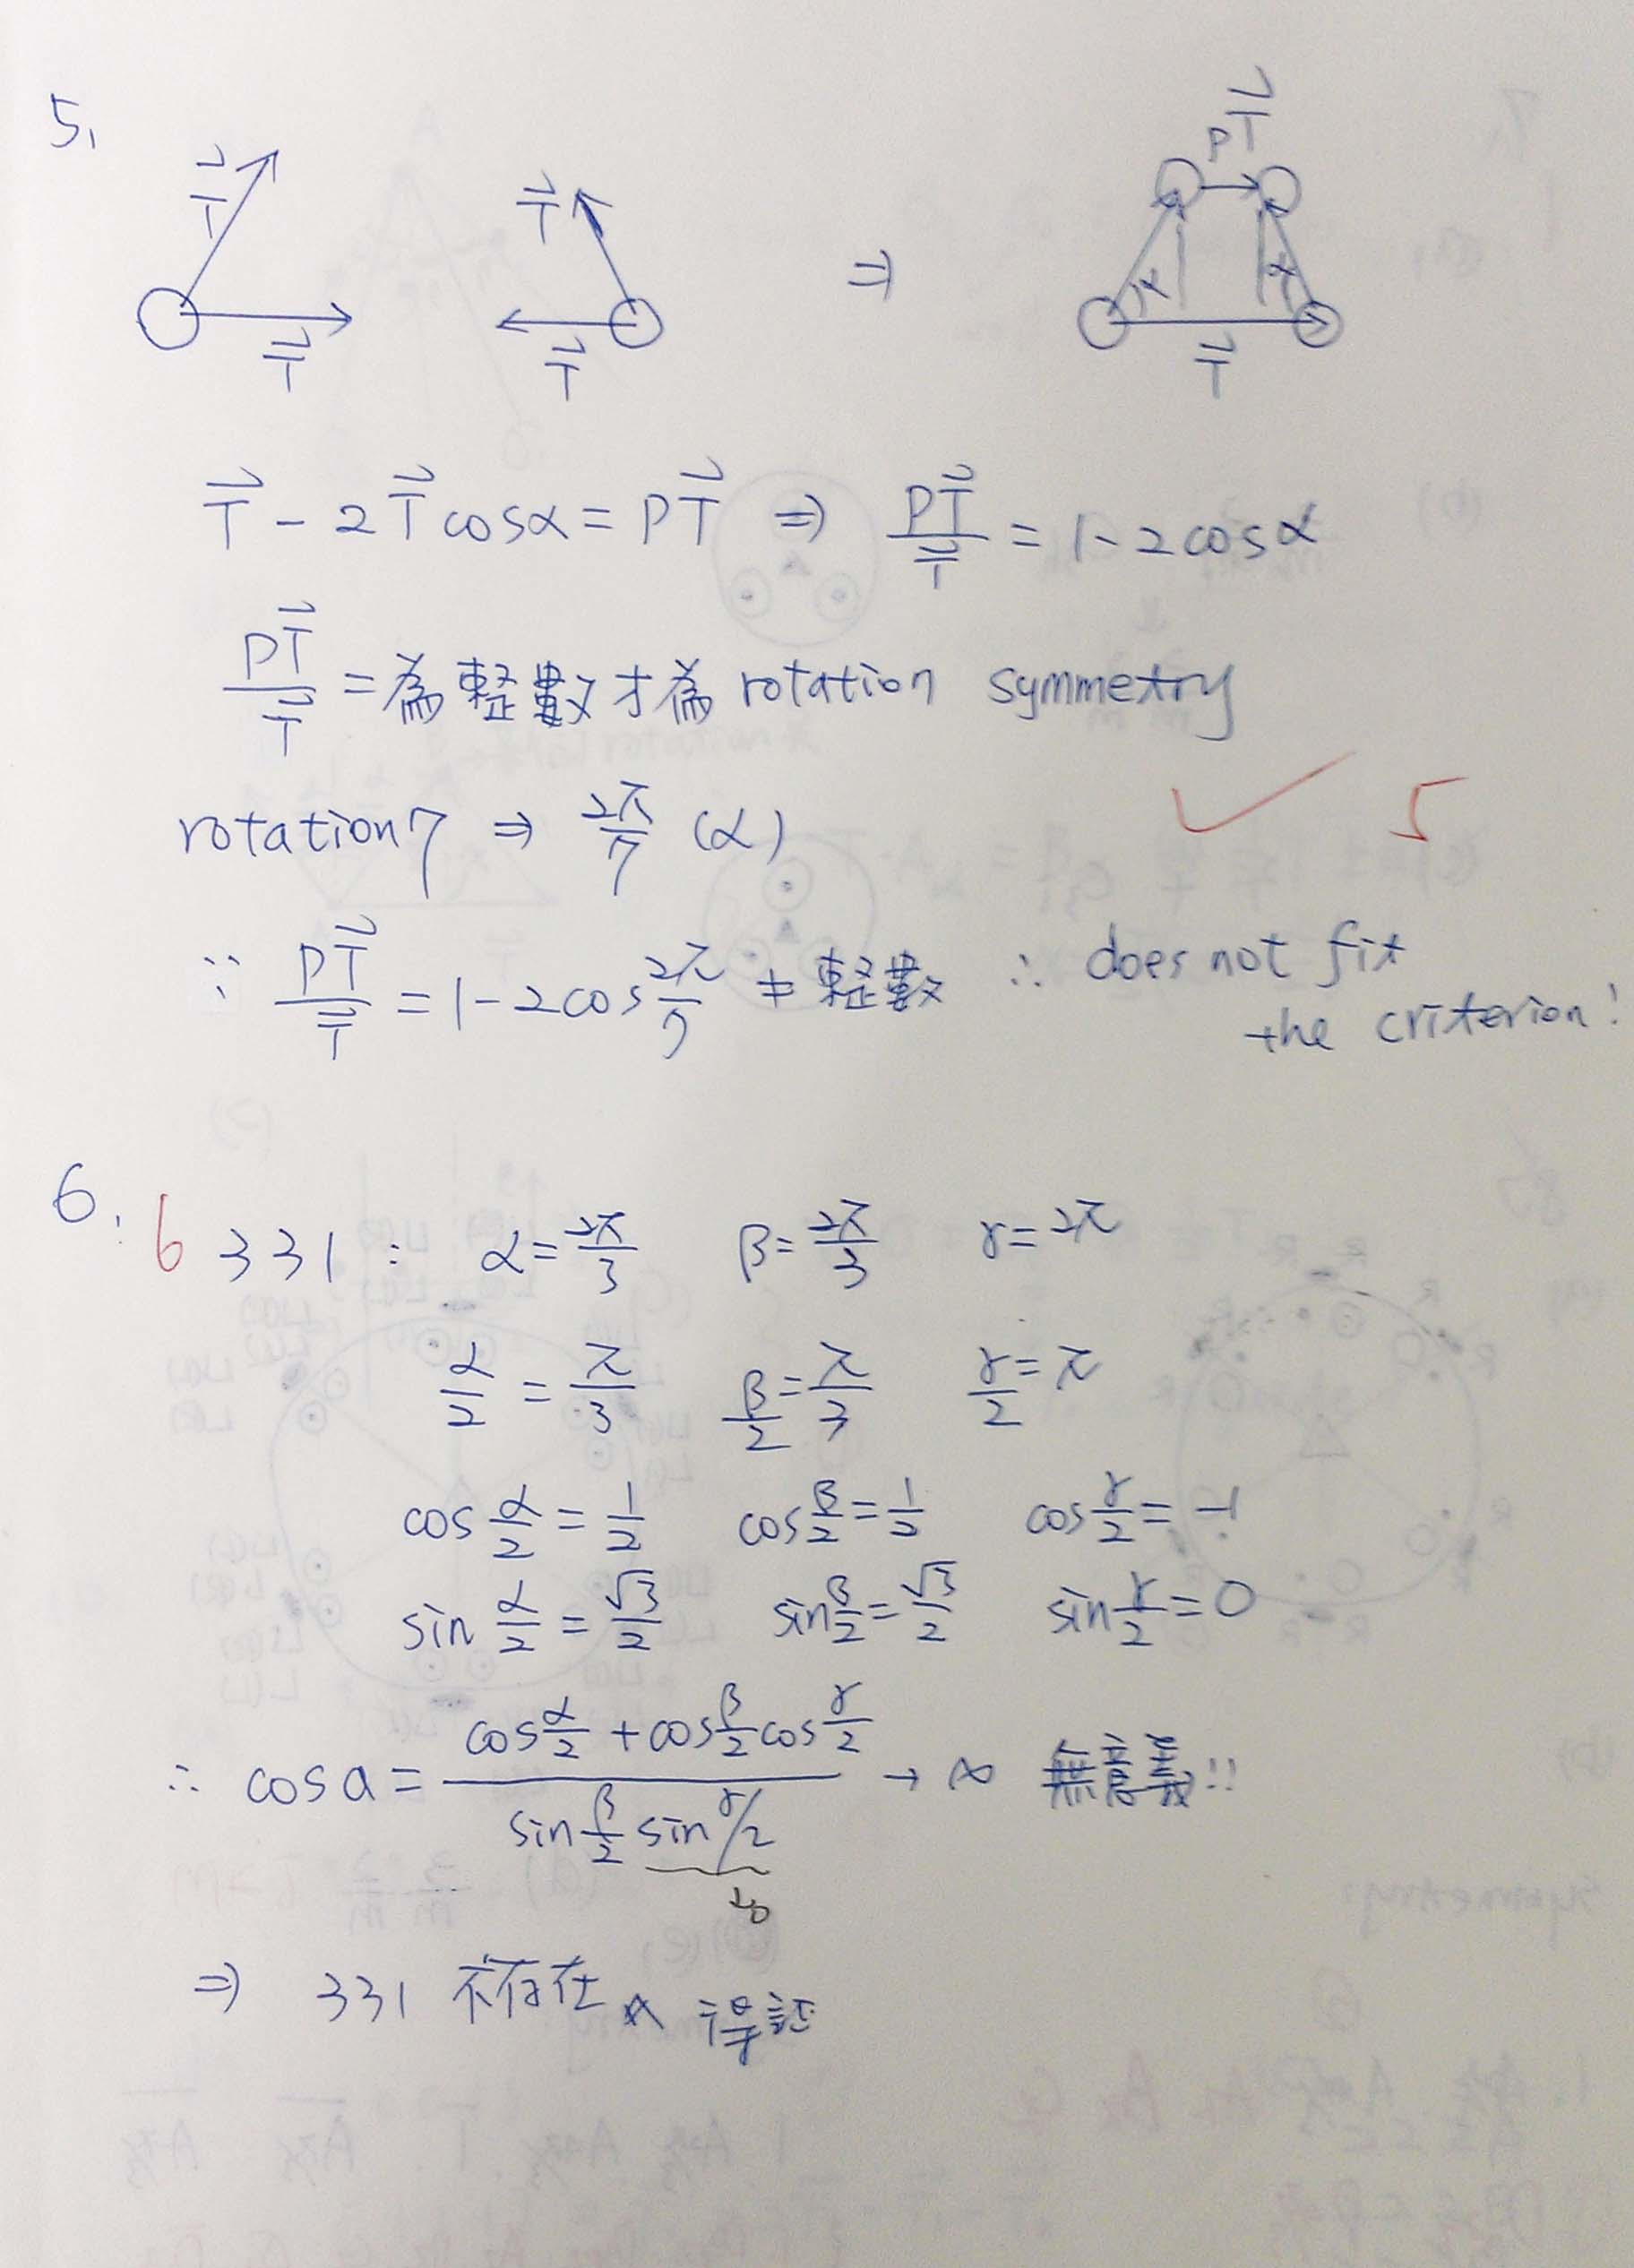 5.
T⃗ T⃗ T⃗ T⃗ ⇒ pT⃗ α α T⃗
T⃗ - 2T⃗cosα = PT⃗ ⇒ PT⃗/T⃗ = 1-2cosα
PT⃗/T⃗ = 為整數才為 rotation symmetry
rotation 7 ⇒ 2π/7 (α) ✓ 5
∵ PT⃗/T⃗ = 1-2cos2π/7 ≠ 整數 ∴ does not fix
the criterion!
6. 6 331 : α=2π/3 β=2π/3 γ=2π
α/2 = π/3 β/2 = π/3 γ/2 = π
cos α/2 = 1/2 cos β/2 = 1/2 cos γ/2 = -1
sin α/2 = √3/2 sin β/2 = √3/2 sin γ/2 = 0
∴ cos a = (cos α/2 + cos β/2 cos γ/2)/(sin β/2 sin γ/2) → ∞ 無意義!!
↳0
⇒ 331 不存在 得証